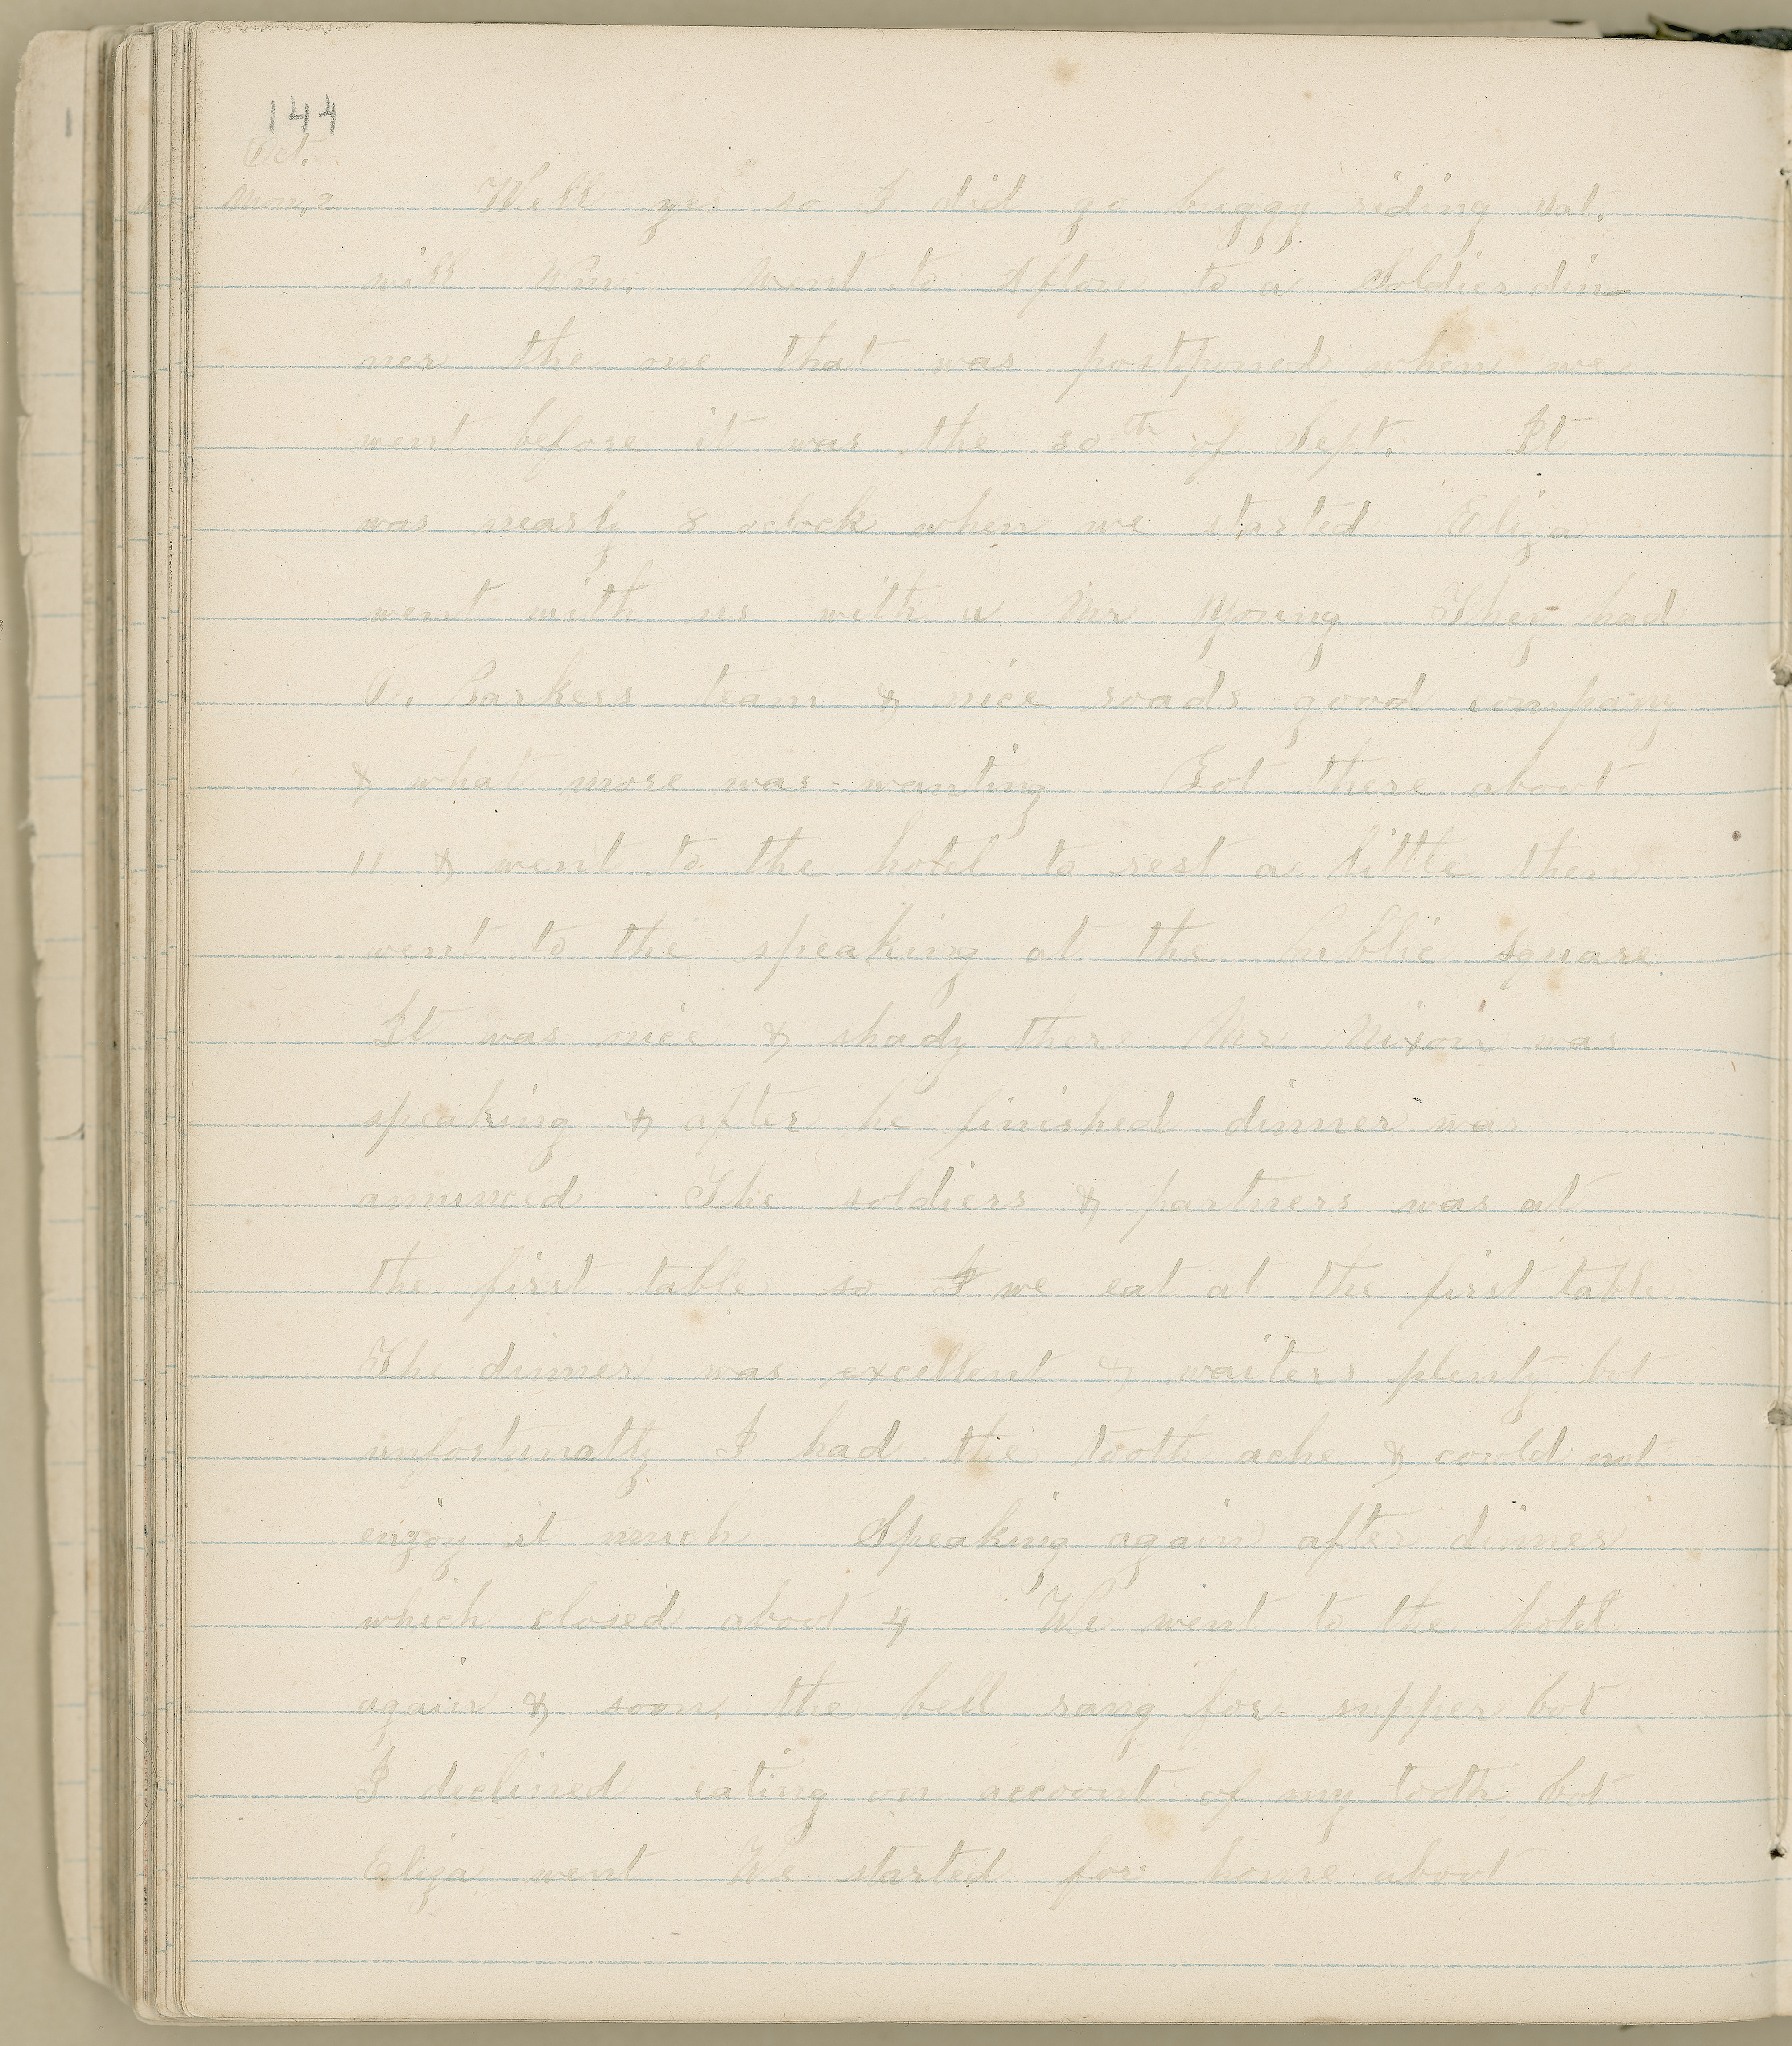 144
Oct.
Mon, 2 Well yes so I did go buggy riding Sat.
with Wm. Went to Afton to a Soldier din-
ner the one that was postponed when we
went before it was the 30th of Sept. It
was nearly 8 oclock when we started Eliza
went with us with a Mr Young They had
O. Barkers team & nice roads good company
& what more was wanting Got there about
11 & went to the hotel to rest a little then
went to the speaking at the public square.
It was nice & shady there Mr Nixon was
speaking & after he finished dinner was
anounced The soldiers & partners was at
the first table so I we eat at the first table
The dinner was excellent & waiters plenty but
unfortunatly I had the tooth ache & could not
enjoy it much Speaking again after dinner
which closed about 4 We went to the hotel
again & soon the bell rang for supper but
I declined eating on account of my tooth but
Eliza went We started for home about